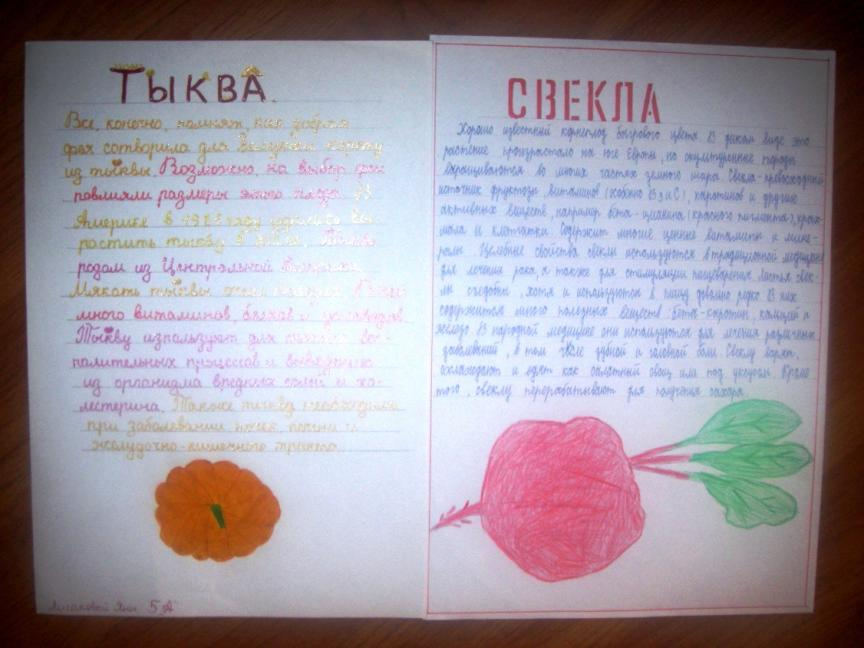 ТЫКВА.
Все, конечно, помнят, как добрая
фея сотворила для Золушки карету
из тыквы. Возможно, на выбор феи
повлияли размеры этого плода. В
Америке в году удалось вы-
растить тыкву в
родом из Центральной Америки.
Мякоть тыквы
много витаминов, белков и углеводов.
Тыкву используют для лечения вос-
палительных процессов и выведения
из организма вредных солей и хо-
лестерина. Также тыква необходима
при заболевании почек, печени и
желудочно-кишечного тракта.
Яны 5 "А"
СВЕКЛА
Хорошо известный корнеплод багрового цвета. В диком виде это
растение произрастало на юге Европы, но окультуренные породы
выращиваются во многих частях земного шара. Свекла - превосходный
источник фруктозы, витаминов (особенно В9 и С), каротинов и других
активных веществ, например бета-циамина (красного пигмента), крах-
мала и клетчатки. Содержит многие ценные витамины и мине-
ралы. Целебные свойства свеклы используются в традиционной медицине
для лечения рака, а также для стимуляции пищеварения. Листья свек-
лы съедобны, хотя и используются в пищу довольно редко. В них
содержится много полезных веществ: бета-каротин, кальций и
железо. В народной медицине они используются для лечения различных
заболеваний, в том числе зубной и головной боли. Свеклу варят,
охлаждают и едят как салатный овощ или под уксусом. Кроме
того, свеклу перерабатывают для получения сахара.